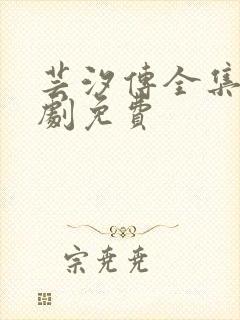 芸汐傳全集
劇免費
宗堯堯